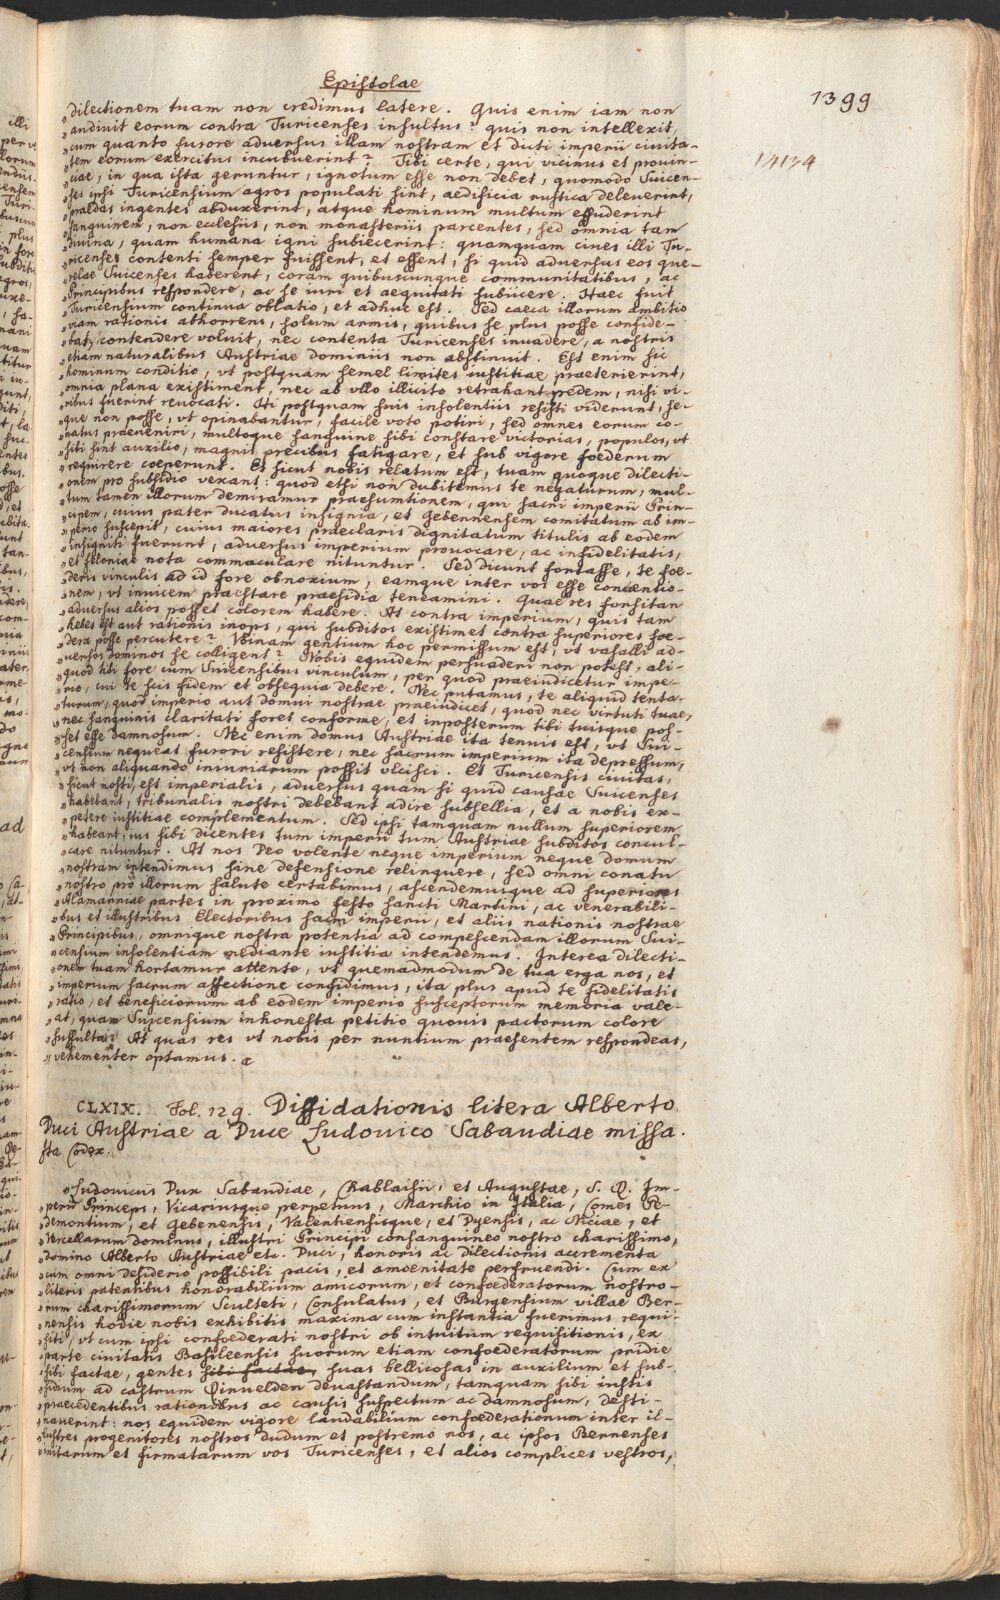 Epistolae
1399
14134
„dilectionem tuam non credimus latere. Quis enim iam non
„audiuit eorum contra Turicenses insultus? quis non intellexit,
„cum quanto furore aduersus illam nostram et dicti imperii ciuita-
„tem eorum exercitus incubuerint? Tibi certe, qui vicinus et prouin-
„ciae, in qua ista geruntur, ignotum esse non debet, quomodo Suicen-
„ses ipsi Turicensium agros populati sint, aedificia rustica deleuerint,
„praedas ingentes abduxerint, atque hominum multum effuderint
„sanguinem, non ecclesiis, non monasteriis parcentes, sed omnia tam
„diuina, quam humana igni subiecerint: quamquam ciues illi Tu-
„ricenses contenti semper fuissent, et essent, si quid aduersus eos que-
„relae Suicenses haberent, coram quibuscunque communitatibus, ac
„Principibus respondere, ac se iuri et aequitati subiicere. Haec fuit
„Turicensium continua oblatio, et adhuc est. Sed caeca illorum ambitio
„viam rationis abhorrens, solum armis, quibus se plus posse confide-
„bat, contendere voluit, nec contenta Turicenses inuadere, a nostris
„etiam naturalibus Austriae dominiis non abstinuit. Est enim sic
„hominum conditio, vt postquam semel limites iustitiae praeterierint,
„omnia plana existiment, nec ab vllo illicito retrahant pedem, nisi vi-
„ribus fuerint reuocati. Hi postquam suis insolentiis resisti viderunt, se-
„que non posse, vt opinabantur, facile voto potiri, sed omnes eorum co-
„natus praeueniri, multoque sanguine sibi constare victorias, populos, vt
„sibi sint auxilio, magnis precibus fatigare, et sub vigore foederum
„requirere coeperunt. Et sicut nobis relatum est, tuam quoque dilecti-
„onem pro subsidio vexant: quod etsi non dubitemus te negaturum, mul-
„tum tamen illorum demiramur praesumtionem, qui sacri imperii Prin-
„cipem, cuius pater ducatus insignia, et Gebennensem comitatum ab im-
„perio suscepit, cuius maiores praeclaris dignitatum titulis ab eodem
„insigniti fuerunt, aduersus imperium prouocare, ac infidelitatis,
„et feloniae nota commaculare nituntur. Sed dicunt fortasse, te foe-
„deris vinculis ad id fore obnoxium, eamque inter vos esse conuentio-
„nem, vt inuicem praestare praesidia teneamini. Quae res forsitan
„aduersus alios posset colorem habere. At contra imperium, quis tam
„hebes est aut rationis inops, qui subditos existimet contra superiores foe-
„dera posse percutere? Vbinam gentium hoc permissum est, vt vasalli ad-
„uersos dominos se colligent? Nobis equidem persuaderi non potest, ali-
„quod tibi fore cum Suicensibus vinculum, per quod praeiudicetur impe-
„rio, cui te scis fidem et obsequia debere. Nec putamus, te aliquid tenta-
„turum, quod imperio aut domui nostrae praeiudicet, quod nec virtuti tuae,
„nec sanguinis claritati foret conforme, et inposterum tibi tuisque pos-
„set esse damnosum. Nec enim domus Austriae ita tenuis est, vt Sui-
„censium nequeat furori resistere, nec sacrum imperium ita depressum,
„vt non aliquando iniuriarum possit vlcisci. Et Turicensis ciuitas,
„sicut nosti, est imperialis, aduersus quam si quid causae Suicenses
„habebant, tribunalis nostri debebant adire subsellia, et a nobis ex-
„petere iustitiae complementum. Sed ipsi tamquam nullum superiorem
„habeant, ius sibi dicentes tum imperii tum Austriae subditos concul-
„care nituntur. At nos Deo volente neque imperium neque domum
„nostram intendimus sine defensione relinquere, sed omni conatu
„nostro pro illorum salute certabimus, ascendemusque ad superiores
„Alamanniae partes in proximo festo sancti Martini, ac venerabili-
„bus et illustribus Electoribus sacri imperii, et aliis nationis nostrae
„Principibus, omnique nostra potentia ad compescendam illorum Sui-
„censium insolentiam mediante iustitia intendemus. Interea dilecti-
„onem tuam hortamur attente, vt quemadmodum de tua erga nos, et
„imperium sacrum affectione confidimus, ita plus apud te fidelitatis
„ratio, et beneficiorum ab eodem imperio susceptorum memoria vale-
„at, quam Suicensium inhonesta petitio quouis pactorum colore
„suffulta: At quas res vt nobis per nuntium praesentem respondeas,
„vehementer optamus.
CLXIX. Fol. 129. Diffidationis litera Alberto
Duci Austriae a Duce Ludouico Sabaudiae missa.
Ita Codex.
„Ludouicus Dux Sabaudiae, Chablaisii, et Augustae, S. R. Im-
„perii Princeps, Vicariusque perpetuus, Marchio in Italia, Comes Pe-
„demontium, et Gebenensis, Valentiensisque, et Dyensis, ac Niciae, et
„Vercellarum dominus, illustri Principi consanguineo nostro charissimo,
„domino Alberto Austriae etc. Duci, honoris ac dilectionis accrementa
„cum omni desiderio possibili pacis, et amoenitate perfruendi. Cum ex
„literis patentibus honorabilium amicorum, et confoederatorum nostro-
„rum charissimorum Sculteti, Consulatus, et Burgensium villae Ber-
„nensis hodie nobis exhibitis maxima cum instantia fuerimus requi-
„siti, vt cum ipsi confoederati nostri ob intuitum requisitionis, ex
„parte ciuitatis Basileensis suorum etiam confoederatorum pridie
„sibi factae, gentes sibi factae, suas bellicosas in auxilium et sub-
„sidium ad castrum Rinuelden deuastandum, tamquam sibi iustis
„praecedentibus rationibus ac causis suspectum ac damnosum, desti-
„nauerint: nos equidem vigore laudabilium confoederationum inter il-
„lustres progenitores nostros dudum et postremo nos, ac ipsos Bernenses
„initarum et firmatarum vos Turicenses, et alios complices vestros,